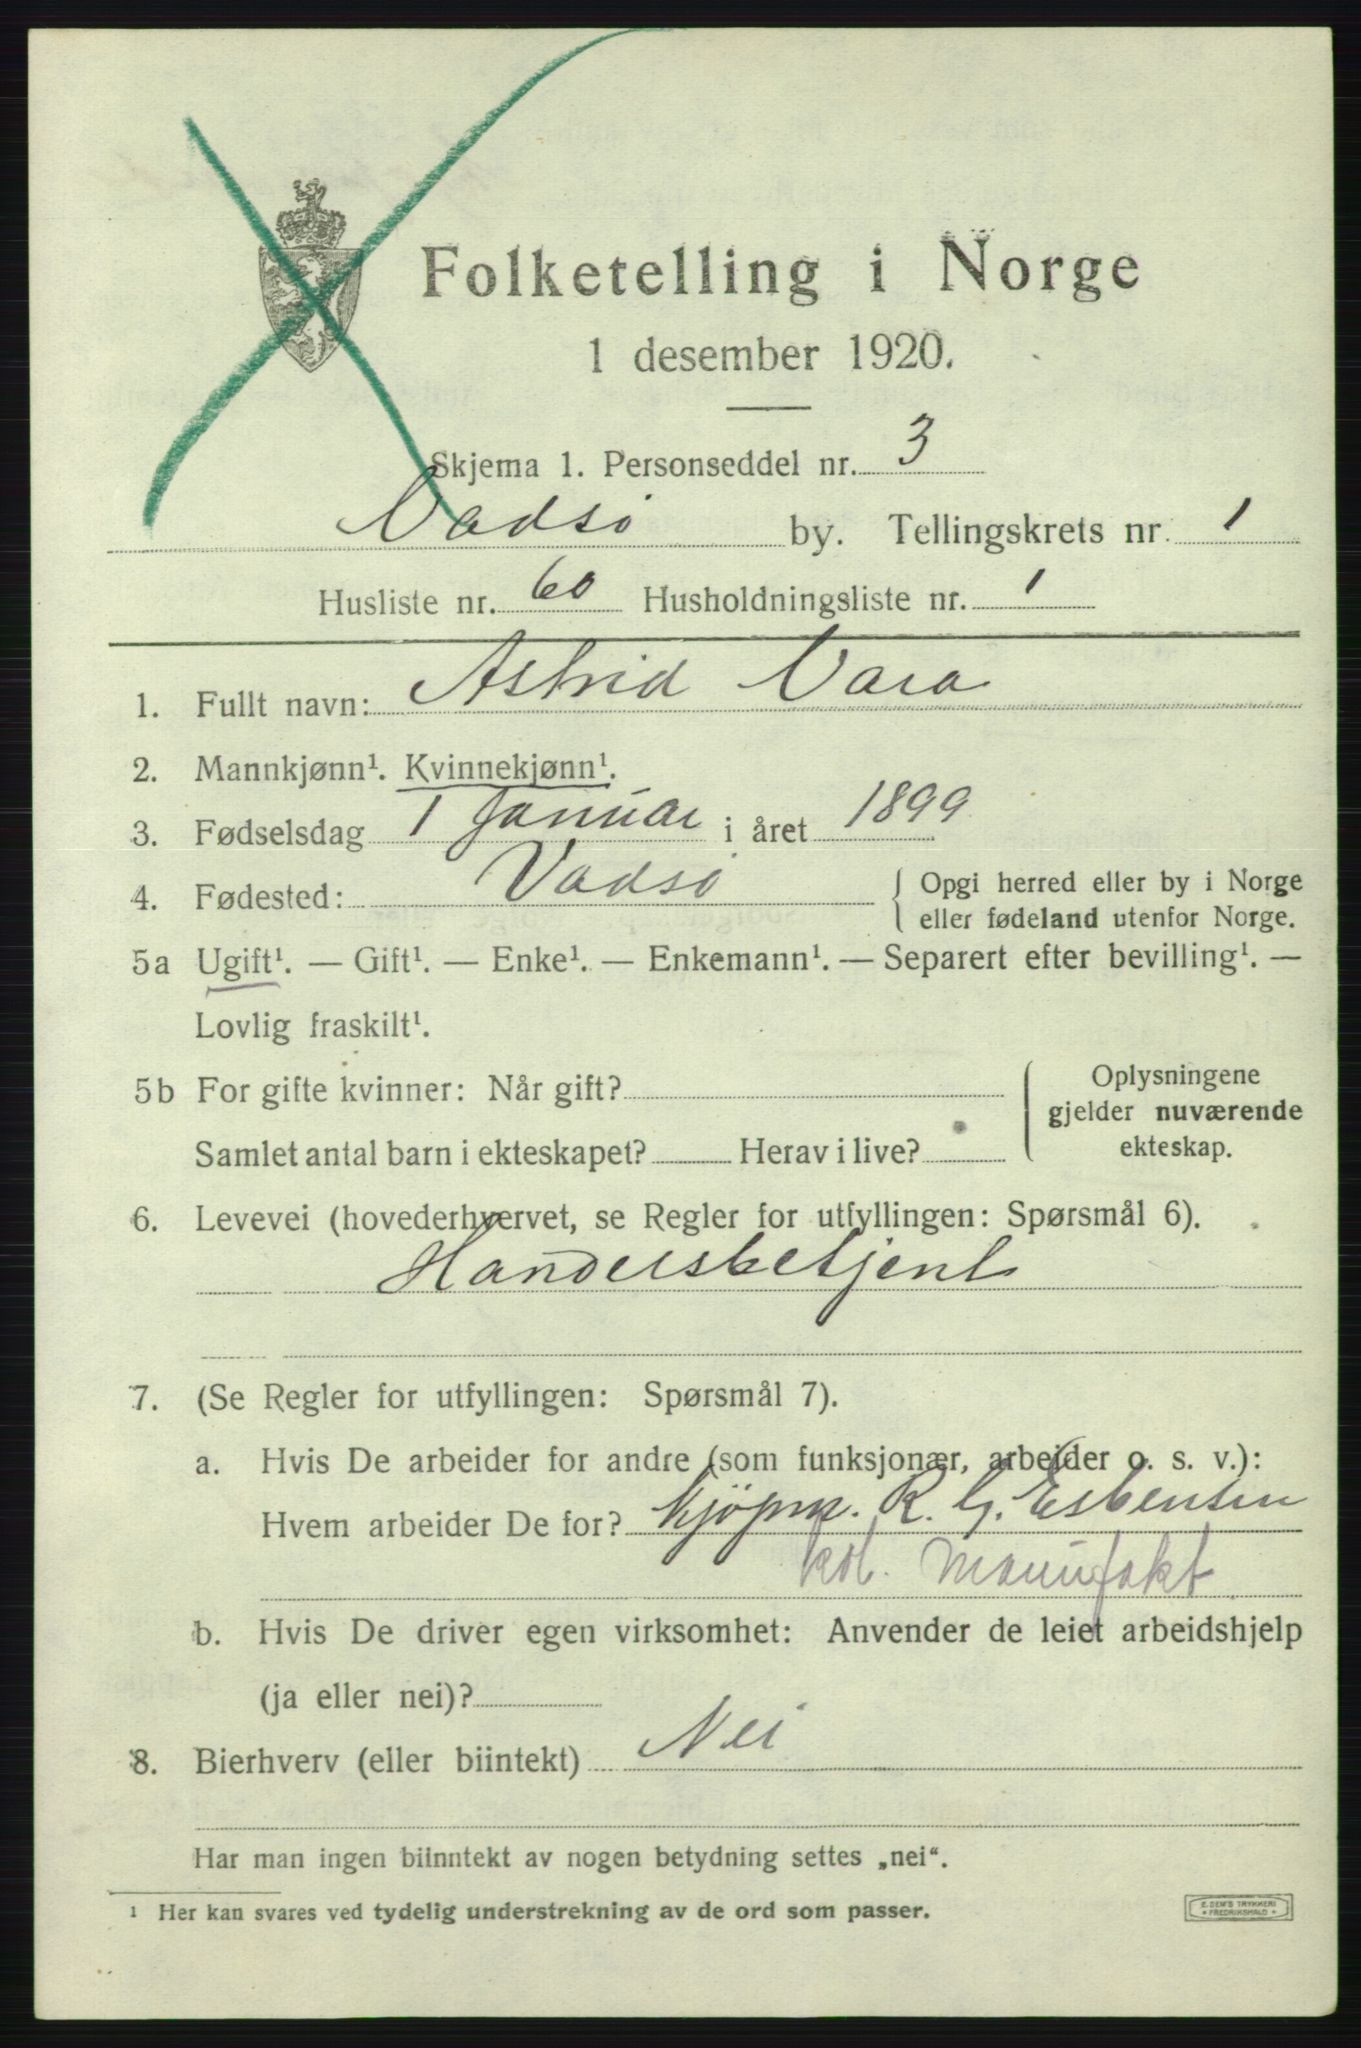 Folketelling i Norge
1 desember 1920.
Skjema 1. Personseddel nr. 3
Vadsö by. Tellingskrets nr. 1
Husliste nr. 60 Husholdningsliste nr. 1
1. Fullt navn: Astrid Vara
2. Mannkjønn¹. Kvinnekjønn¹.
3. Fødselsdag 1 Januar i året 1899
4. Fødested: Vadsö { Opgi herred eller by i Norge
eller fødeland utenfor Norge.
5a Ugift¹. — Gift¹. — Enke¹. — Enkemann¹. — Separert efter bevilling¹. —
Lovlig fraskilt¹.
5b For gifte kvinner: Når gift?
Samlet antal barn i ekteskapet? Herav i live?
Oplysningene
gjelder nuværende
ekteskap.
6. Levevei (hovederhvervet, se Regler for utfyllingen: Spørsmål 6).
Handelsbetjent
7. (Se Regler for utfyllingen: Spørsmål 7).
a. Hvis De arbeider for andre (som funksjonær, arbeider o. s. v.):
Hvem arbeider De for? Kjöpm. R. G. Esbensen
kol. Manufakt
b. Hvis De driver egen virksomhet: Anvender de leiet arbeidshjelp
(ja eller nei)?
8. Bierhverv (eller biintekt) Nei
Har man ingen biinntekt av nogen betydning settes „nei".
¹ Her kan svares ved tydelig understrekning av de ord som passer.
E. SEM'S TRYKKERI
FREDRIKSHALD